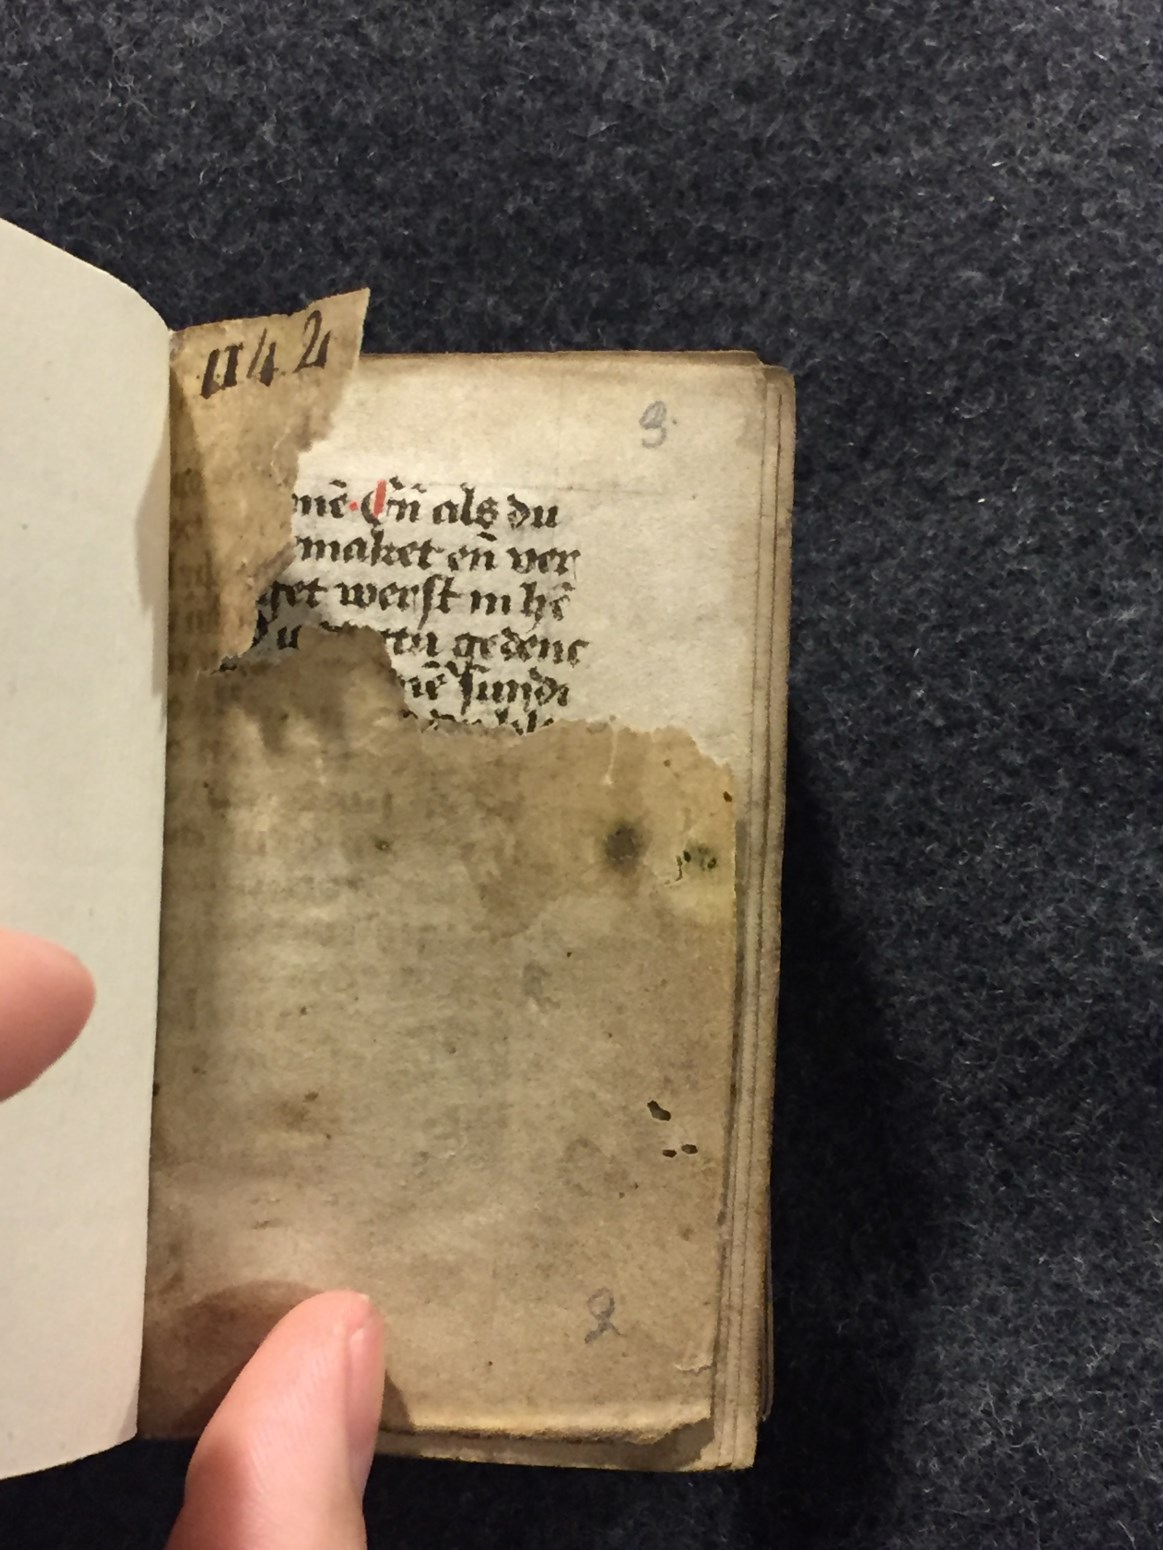 1142
3.
mē. En̄ als du
maket en̄ ver
get werst in hē
du gedenc
nē sundi
2